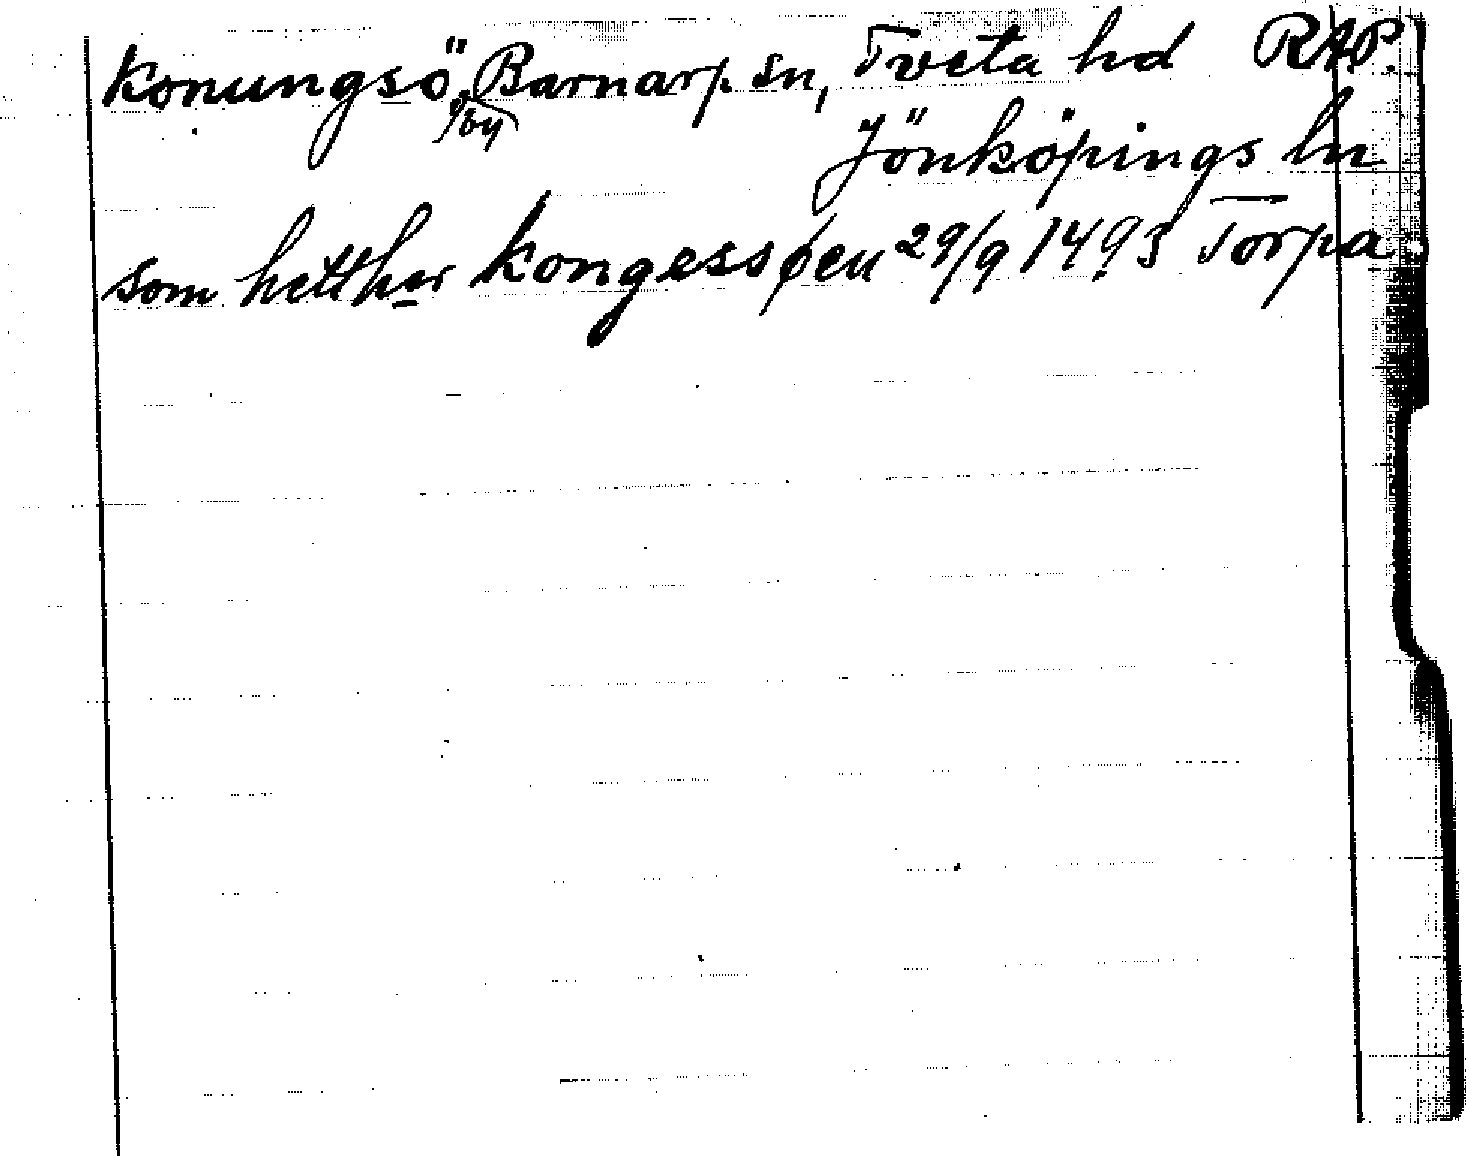 Konungsö, by, Barnarp sn, Tveta hd RAP.
Jönköpings ln
som hetther kongessøen 29/9 1493 Torpa